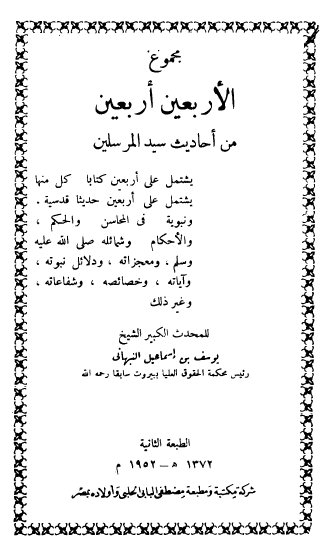 مجموع
الأربعين أربعين
من أحاديث سيد المرسلين
يشتمل على أربعين كتابا كل منها
يشتمل على أربعين حديثا قدسية .
ونبوية فى المحاسن والحكم ،
والأحكام وشمائله صلى الله عليه
وسلم ، ومعجزاته ، ودلائل نبوته ،
وآياته ، وخصائصه ، وشفاعاته ،
وغير ذلك
للمحدث الكبير الشيخ
يوسف بن إسماعيل النبهانى
رئيس محكمة الحقوق العليا ببيروت سابقا رحمه الله
الطبعة الثانية
١٣٧٢ هـ - ١٩٥٢ م
شركة مكتبة ومطبعة مصطفى البابى الحلبى وأولاده بمصر